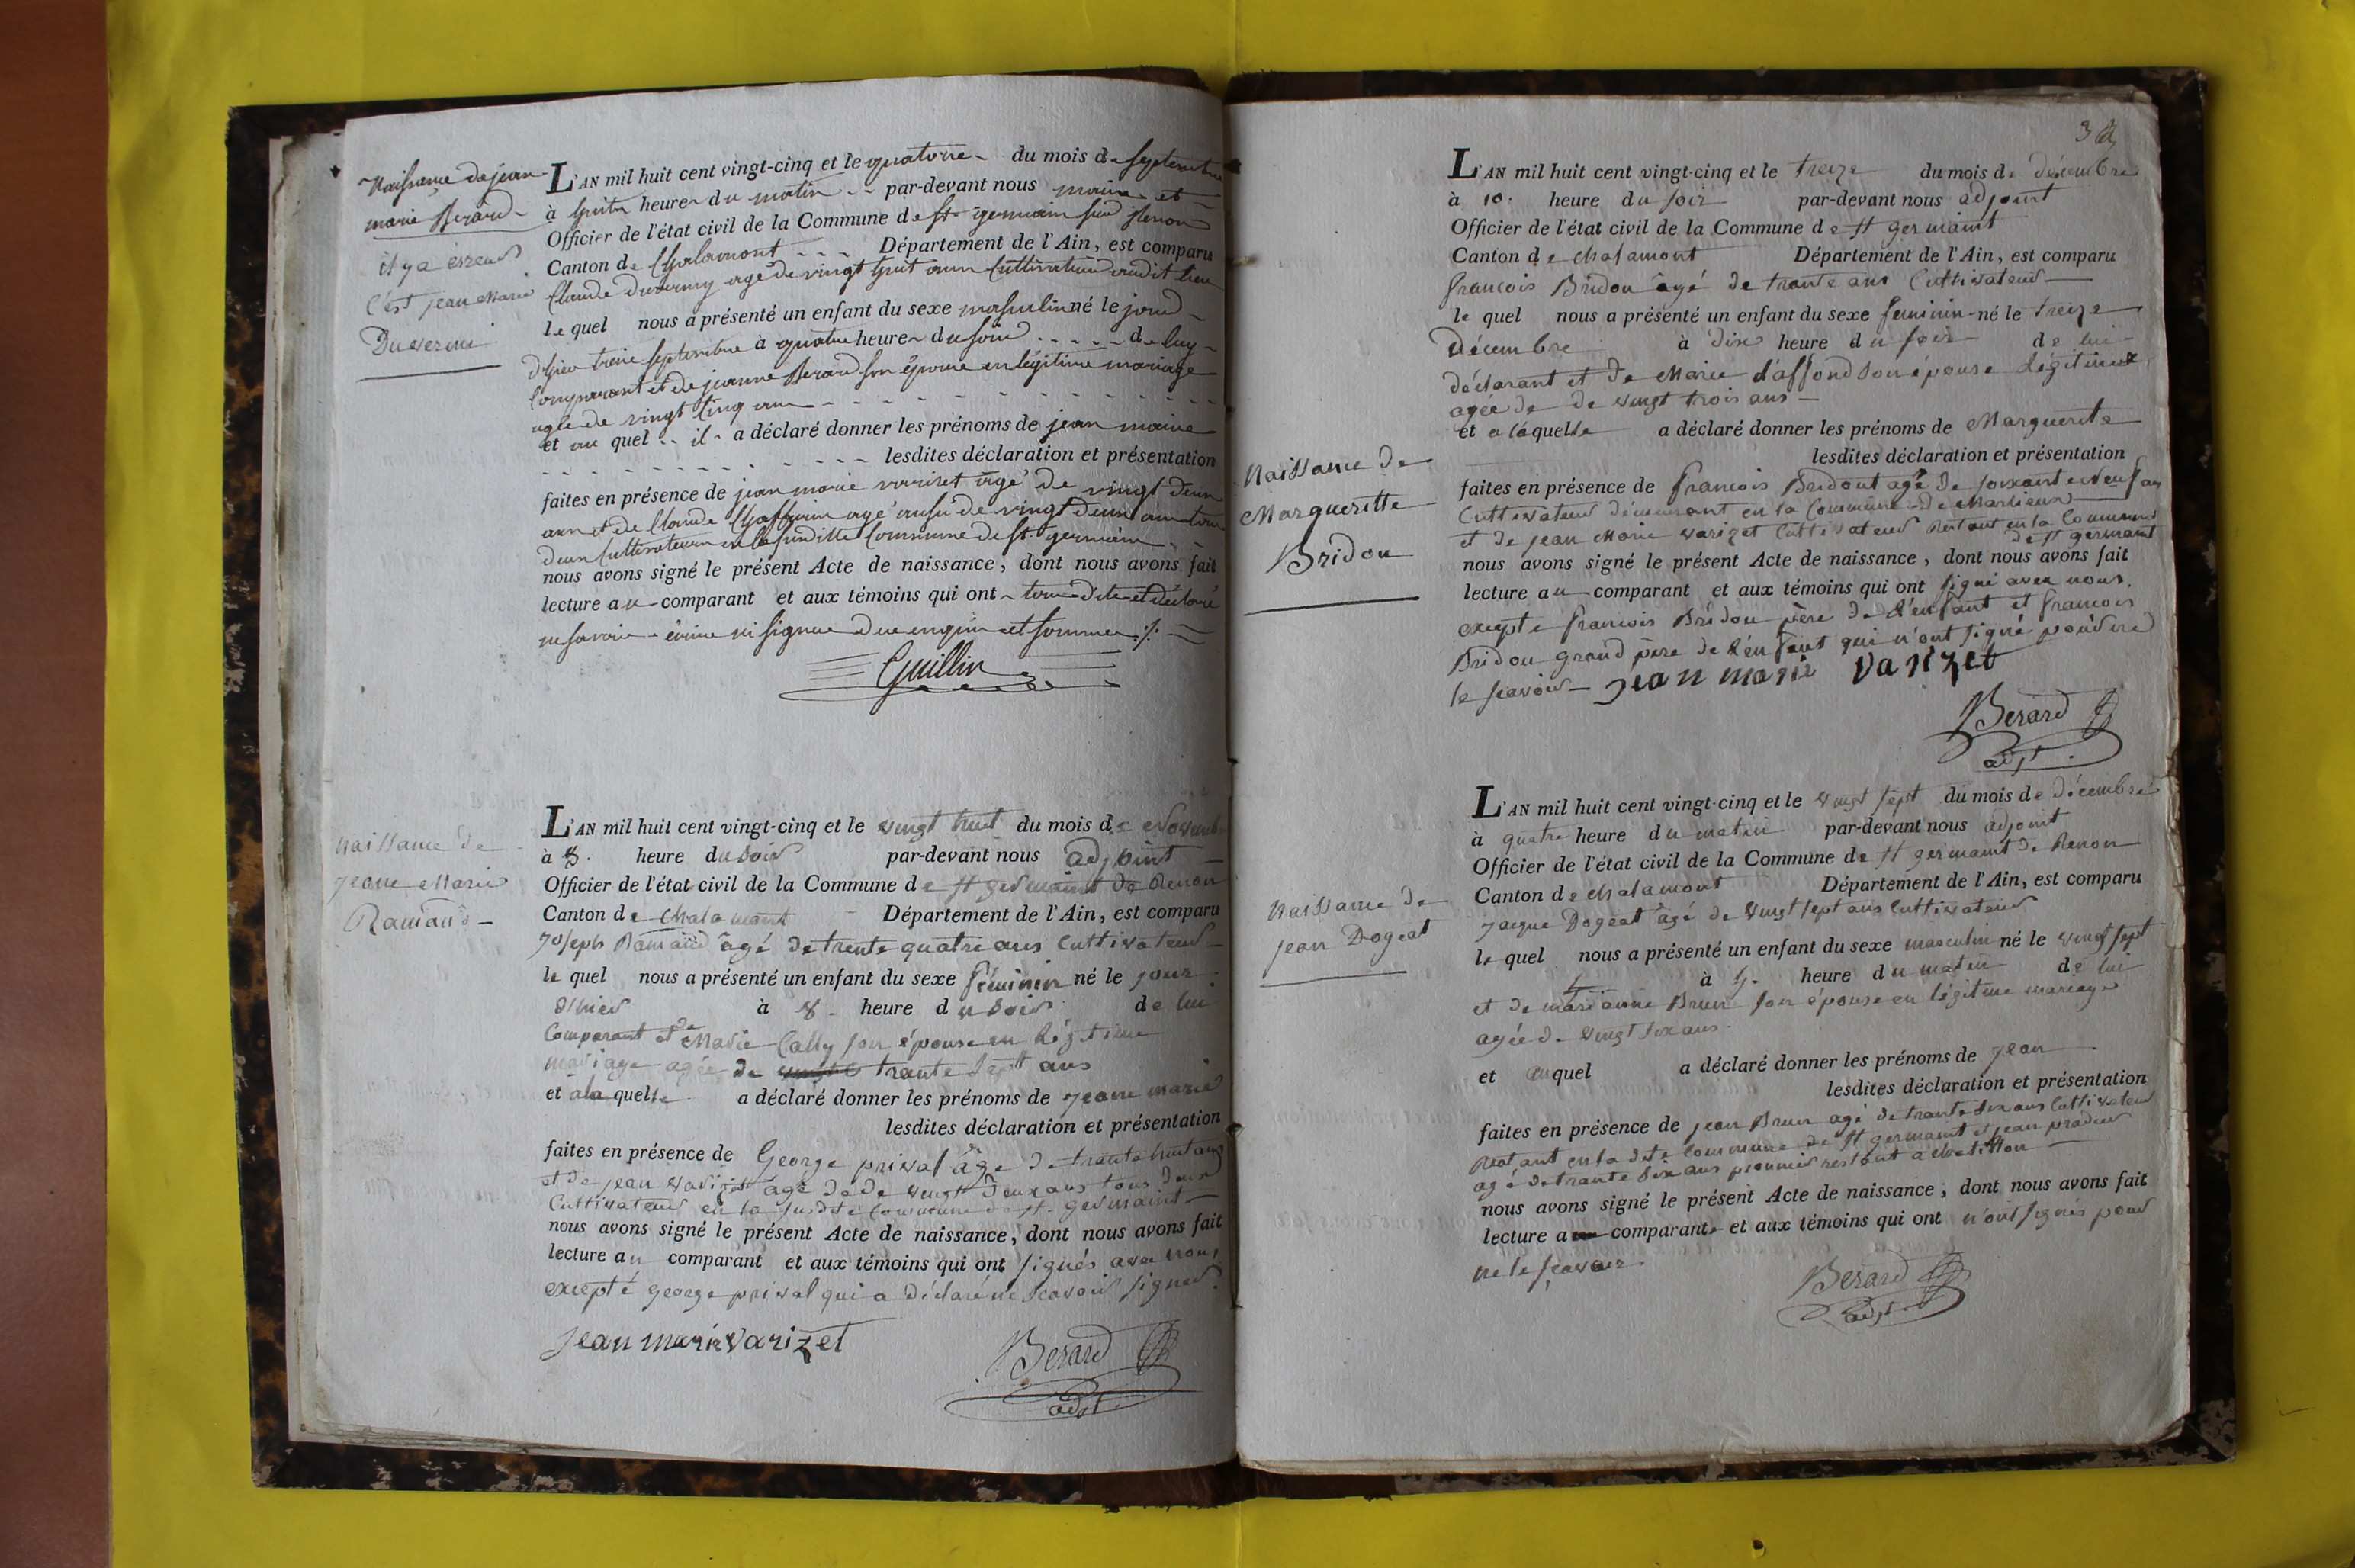 Naissance de jean
marie Berard
il y a erreur
C'est jean Marie
Duverni
L'AN mil huit cent vingt-cinq et le quatorze du mois de septembre
à huit heure du matin par-devant nous maire et
Officier de l'état civil de la Commune de st germain sur Renon
Canton de Chalamont Département de l'Ain, est comparu
Claude Duverny agé de vingt huit ans Cultivateur audit lieu
le quel nous a présenté un enfant du sexe masculin né le jour
d'hier treize septembre à quatre heure du soir de luy
Comparant et de jeanne Berard son épouse en légitime mariage
agée de vingt cinq ans
et au quel il a déclaré donner les prénoms de jean marie
lesdites déclaration et présentation
faites en présence de jean marie varizet âgé de vingt deux
ans et de Claude agé aussi de vingt deux ans tous
deux Cultivateurs en la susditte Commune de st. germain
nous avons signé le présent Acte de naissance, dont nous avons fait
lecture au comparant et aux témoins qui ont tous déclaré
ne savoir écrire ni signer de ce enquis et sommés ./.
Guillin
Naissance de
jeane Marie
Ramand
L'AN mil huit cent vingt-cinq et le vingt huit du mois de Novembre
à 8. heure du Soir par-devant nous adjoint
Officier de l'état civil de la Commune de st germaint de Renon
Canton de Chalamont Département de l'Ain, est comparu
joseph Ramand âgé de trente quatre ans Cultivateur
le quel nous a présenté un enfant du sexe féminin né le jour
d'hier à 8. heure du Soir de lui
Comparant et de Marie Cally son épouse en légitime
mariage agée de trante Sept ans
et a la quelle a déclaré donner les prénoms de jeane marie
lesdites déclaration et présentation
faites en présence de George prival âge de trante huit ans
et de jean varizet agé de de vingt deux ans tous deux
Cultivateur en la susdite Commune de st. germaint
nous avons signé le présent Acte de naissance, dont nous avons fait
lecture au comparant et aux témoins qui ont signés avec nous
excepté george prival qui a déclaré ne Scavoir signer.
jean marie varizet
Berard
adjt
3
L'AN mil huit cent vingt-cinq et le treize du mois de décembre
à 10. heure du soir par-devant nous adjoint
Officier de l'état civil de la Commune de st germaint
Canton de chalamont Département de l'Ain, est comparu
francois Bridou âgé de trante ans Cultivateur
le quel nous a présenté un enfant du sexe feminin né le treize
Décembre à dix heure du soir de lui
déclarant et de Marie daffond son épouse légitime
agée de de vingt trois ans
et a laquelle a déclaré donner les prénoms de Marguerite
lesdites déclaration et présentation
faites en présence de francois Bridout agé de soixante neuf ans
Cultivateur demeurant en la Commune de Marlieux
et de jean Marie varizet Cultivateur Restant en la Commune
de st germaint
nous avons signé le présent Acte de naissance, dont nous avons fait
lecture au comparant et aux témoins qui ont signé avec nous.
excepte francois Bridou père de l'enfant et francois
Bridou grand père de l'enfant qui n'ont signé pour ne
le scavoir
jean marie varizet
Berard
adjt.
Naissance de
Margueritte
Bridou
L'AN mil huit cent vingt-cinq et le vingt sept du mois de décembre
à quatre heure du matin par-devant nous adjoint
Officier de l'état civil de la Commune de st germaint de Renon
Canton de chalamont Département de l'Ain, est comparu
jacque Dogeat âgé de vingt sept ans Cultivateur
le quel nous a présenté un enfant du sexe masculin né le vingt sept
à 4. heure du matin de lui
et de marianne Brun son épouse en légitime mariage
agée de vingt six ans.
et auquel a déclaré donner les prénoms de jean
lesdites déclaration et présentation
faites en présence de jean Brun agé de trante six ans Cultivateur
Restant en la dite Commune de st germaint et jean
agé de trante six ans restant a chatillon
nous avons signé le présent Acte de naissance, dont nous avons fait
lecture a comparant et aux témoins qui ont n'ont signés pour
ne le scavoir
Berard
adjt.
Naissance de
jean Dogeat